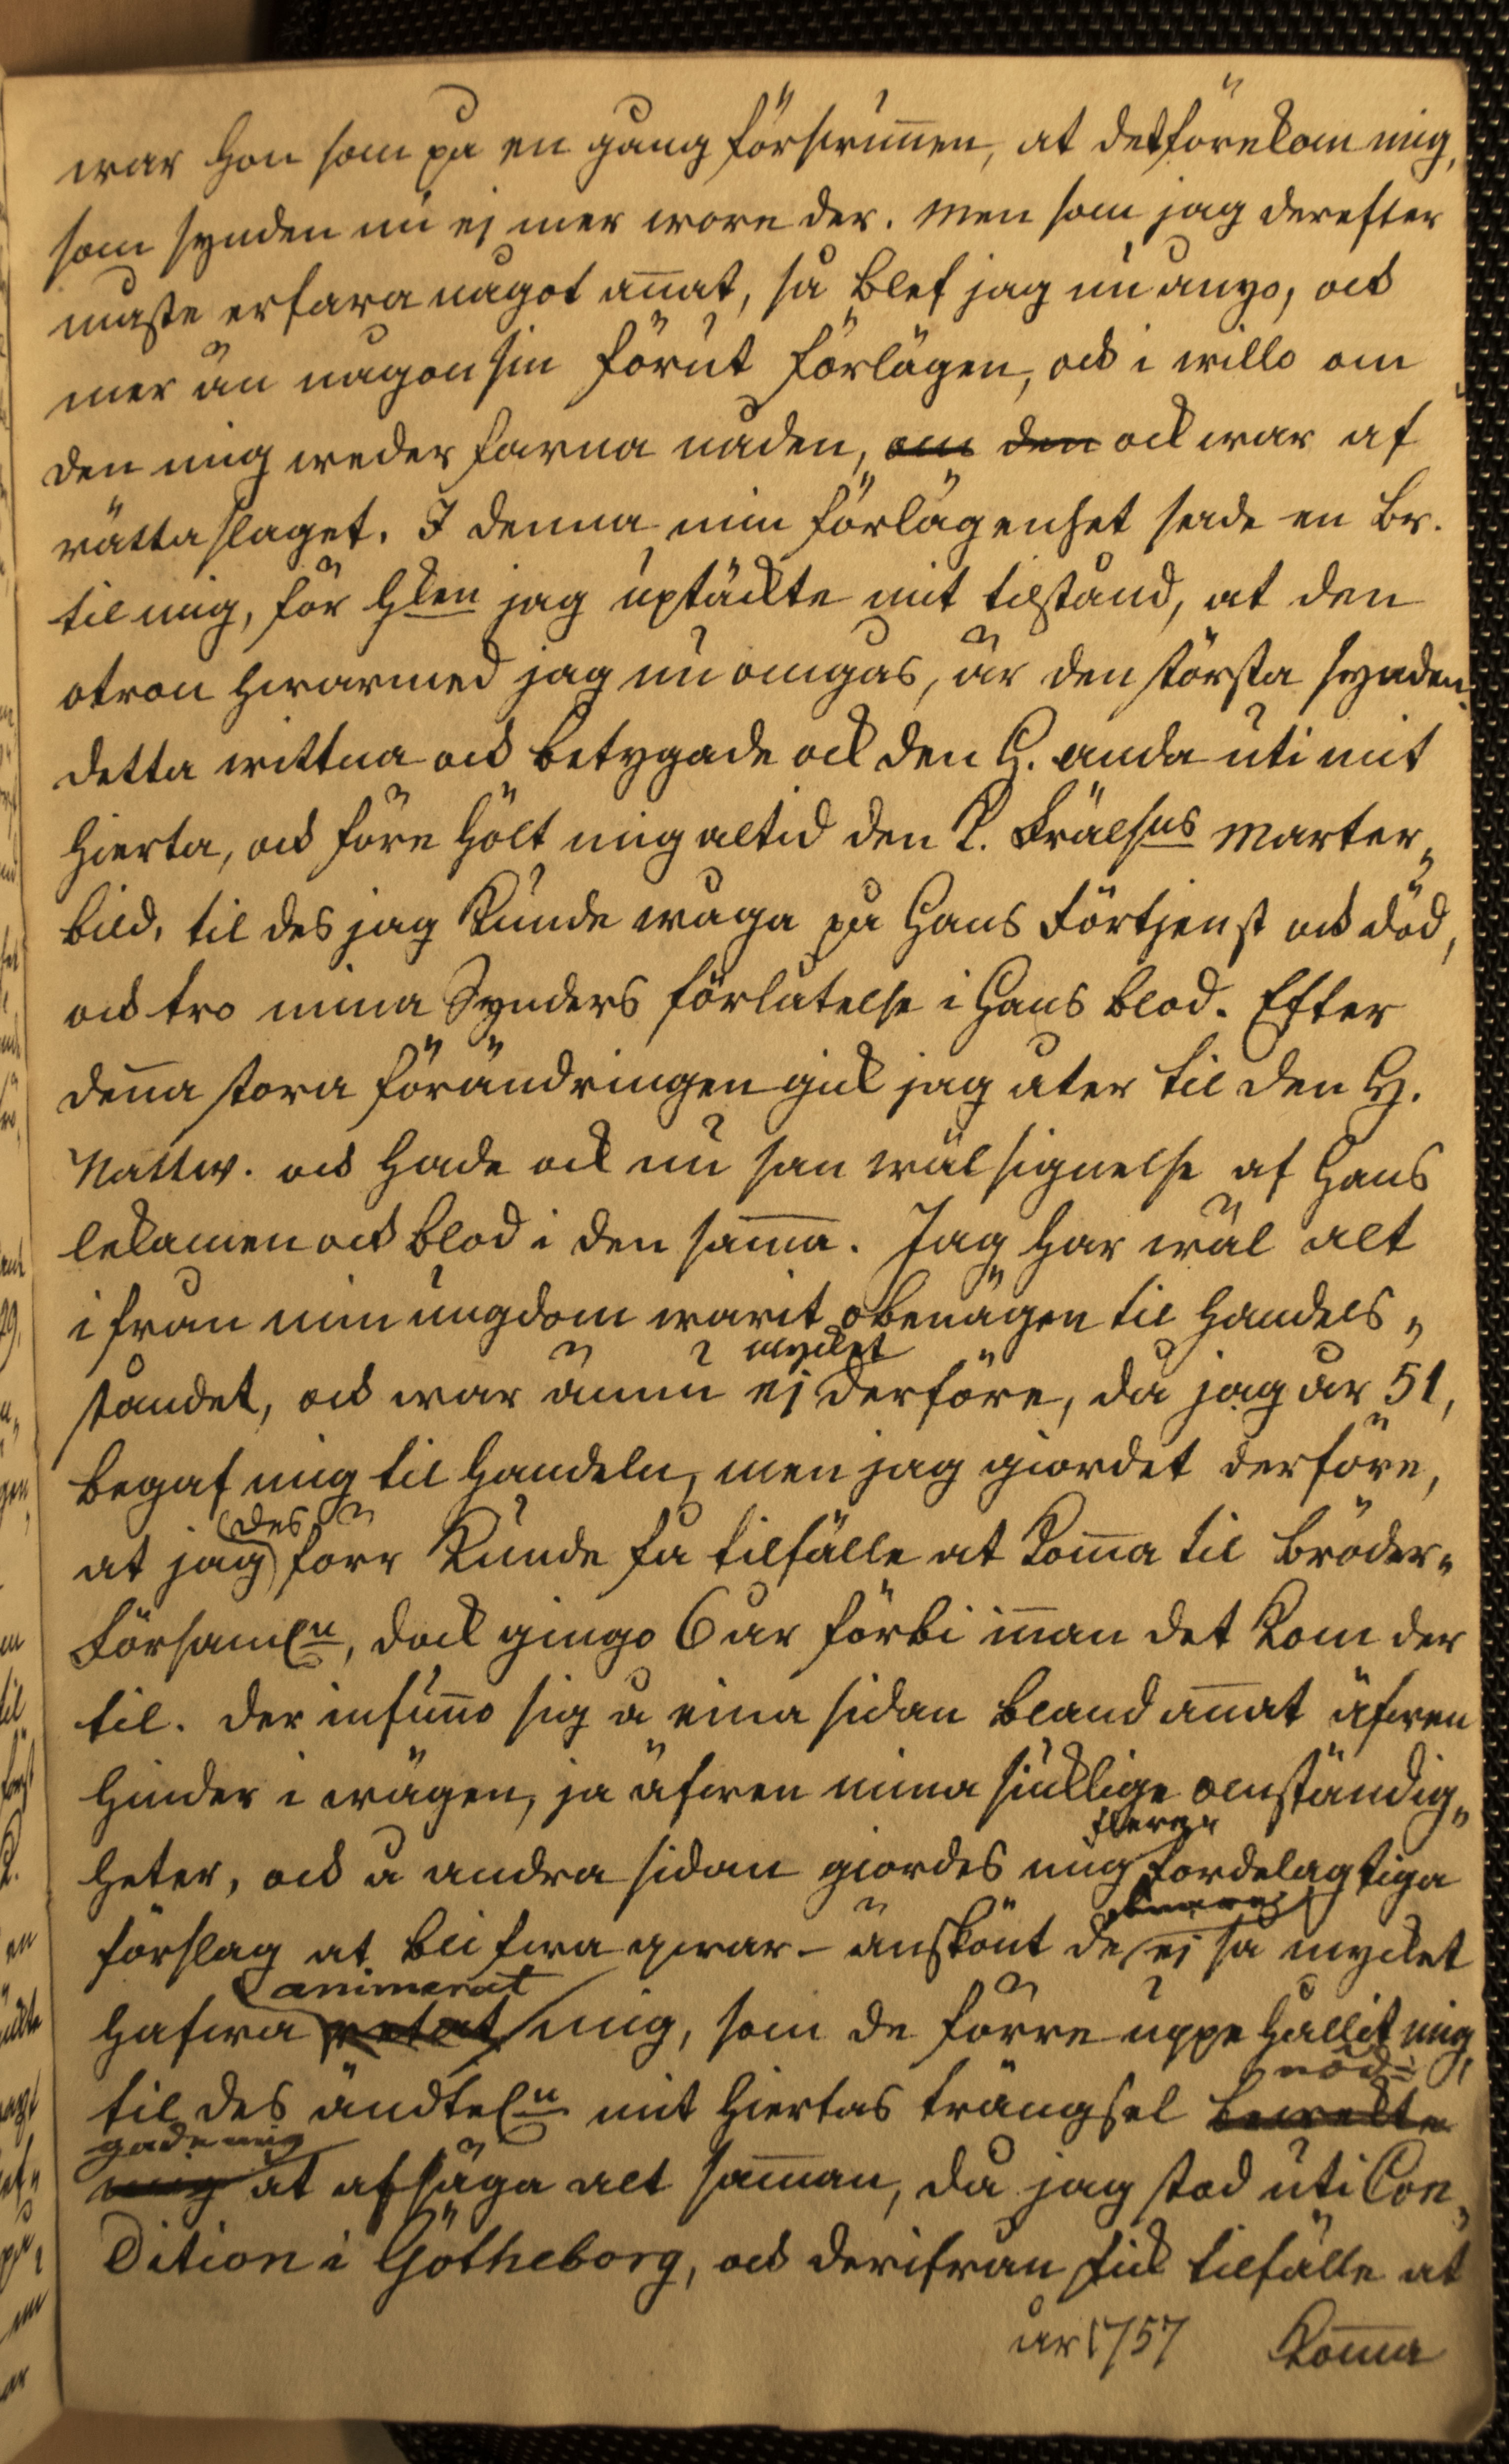 war hon som på en gång förswunnen, at det förekom mig,
som synden nu ej mer wore der. Men som jag derefter
måste erfara något annat, så blef jag nu å nyo, ock
mer än någonsin förut förlägen, ock i willo om
den mig wederfarna nåden, om den ock war af
rätta slaget. I denna min förlägenhet sade en Br.
til mig, för hken jag uptäckte mit tilstånd, at den
otron hwarmed jag nu omgås, är den största synden.
detta wittna ock betygade ock den H. anda uti mit
hierta, ock före hölt mig altid den k. Frälsns marter„
bild, til des jag kunde wåga på Hans Förtjenst ock död,
ock tro mina Synders förlåtelse i Hans blod. Efter
denna stora förändringen gick jag åter til den H.
Nattw. ock hade ock nu san wälsignelse af Hans
lekamen ock blod i den samma. Jag har wäl alt
ifrån min ungdom warit obenägen til Handels„
ståndet, ock war ännu ej mycket derföre, då jag år 51,
begaf mig til Handeln, men jag giordet derföre,
at jag des förr kunde få tilfälle at komma til Bröder„
Församln, dock gingo 6 år förbi innan det kom der
til. der infunno sig å eina sidan bland annat äfwen
hinder i wägen, ja äfwen mina siuklige omständig„
heter, ock å andra sidan giordes mig flerga fordelagtiga
förslag at blifwa qwar – änskönt de ej så mycket
hafwa animerat mig, som de förre uppehållit mig,
til des ändteln mit hiertas trängsel bewekte nöd=
gade mig mig at afsäga alt samman, då jag stod uti Con„
dition i Götheborg, ock derifrån fick tilfälle at
år 1757 komma